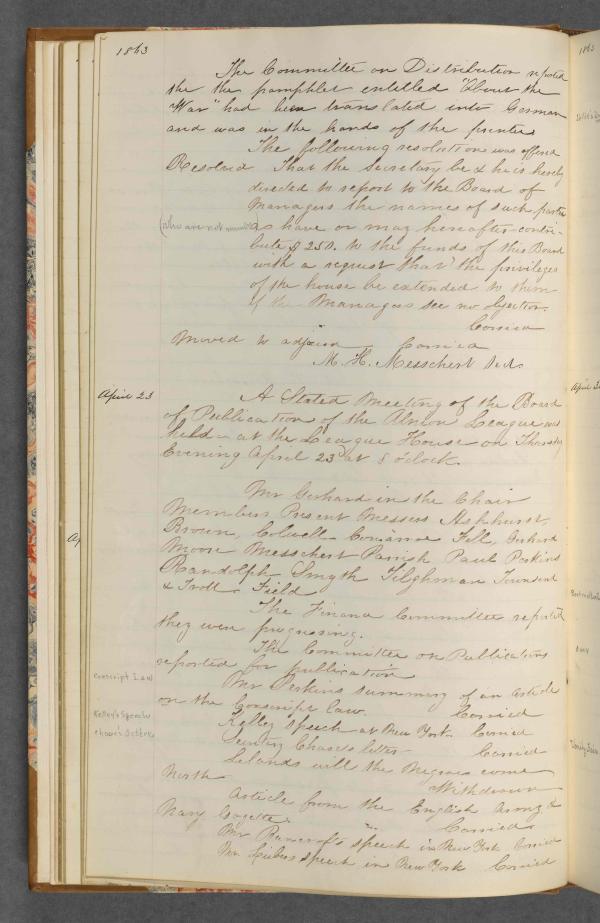 1863
The Committee on Distribution reported
the the pamphlet entitled "About the
War" had been translated into German
and was in the hands of the printer
The following resolution was offered
Resolved That the Secretary be & he is hereby
directed to report to the Board of
Managers the names of such parties
(who are not members) as have or may hereafter contri-
bute $250. to the funds of this Board
with a request that the privileges
of the house be extended to them
if the Managers see no objection.
Carried
Moved to adjourn Carried
M. H. Messchert Sect.
April 23
A Stated Meeting of the Board
of Publication of the Union League was
held at the League House on Thursday
Evening April 23 at 8 o'clock.
Mr Gerhard in the Chair
Members Present Messers Ashhurst,
Brown, Colwell Fell, Gerhard
Moore Messchert Parrish Paul Perkins
Randolph Smyth Tilghman Townsend
& Trott Field
The Finance Committee reported
they were progressing.
The Committee on Publications
reported for publication
Conscript Law
Mr Perkins summary of an article
on the Conscript law. Carried
Kelley's Speech
Kelley speech at New York Carried
Chase's Letter
Chases letter Carried
Lelands will the Negroes come
North Withdrawn
Article from the English Army &
Navy Gazette. Carried
Mr Bancroft's speech in New York Carried
Mr Liebers speech in New York Carried
1863
April 30